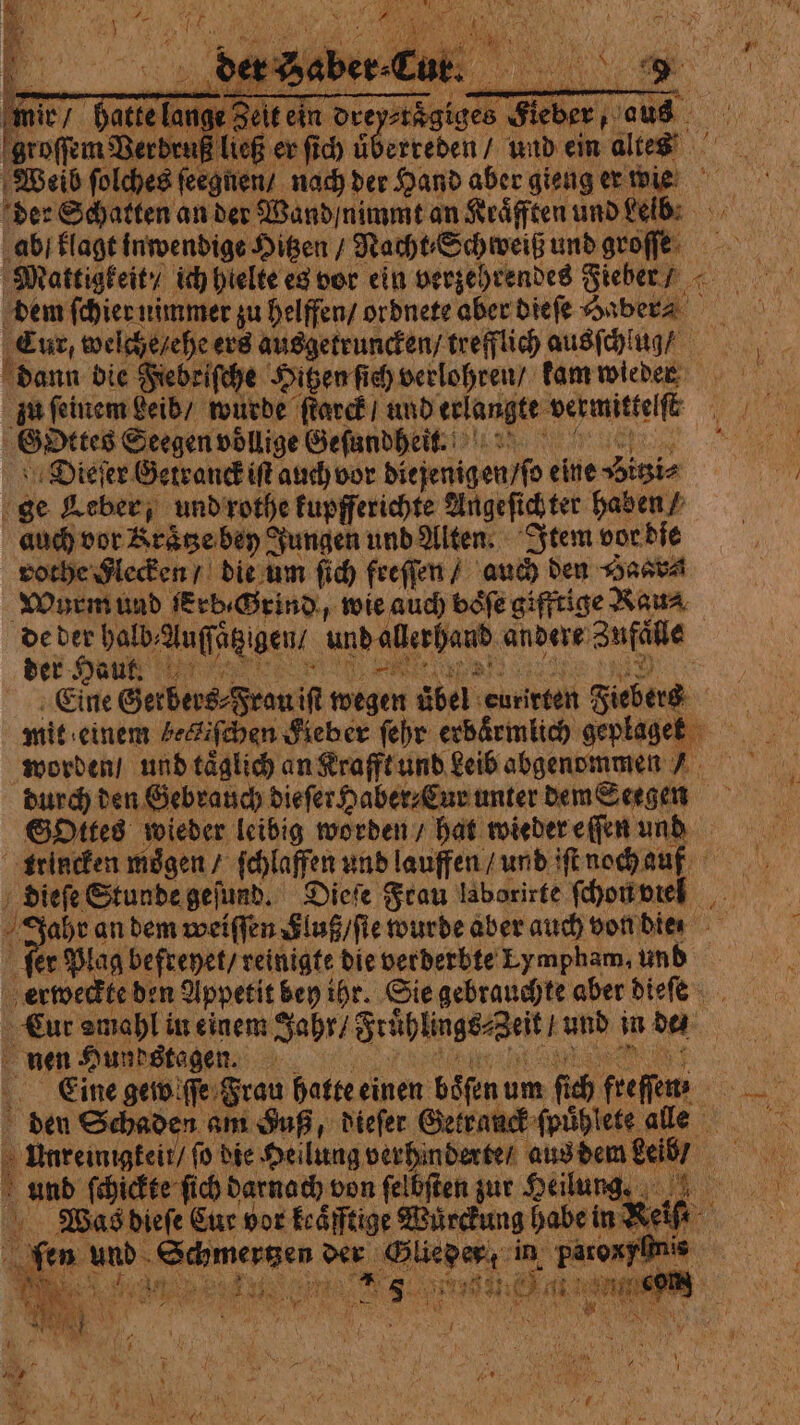 der Haber-Cur. 9
mir / hatte lange Zeit ein drey-tägiges Fieber, aus
grossem Verdruß ließ er sich überreden / und ein altes
Weib solches seegnen / nach der Hand aber gieng er wie
der Schatten an der Wand / nimmt an Kräfften und Leib
ab / klagt inwendige Hitzen / Nacht-Schweiß und grosse
Mattigkeit / ich hielte es vor ein verzehrendes Fieber /
dem schier nimmer zu helffen / ordnete aber diese Haber-
Cur, welche / ehe ers ausgetruncken / trefflich ausschlug /
dann die Fiebrische Hitzen sich verlohren / kam wieder
zu seinem Leib / wurde starck / und erlangte vermittelst
GOttes Seegen völlige Gesundheit.
Dieser Getranck ist auch vor diejenigen / so eine Hitzi-
ge Leber, und rothe kupfferichte Angesichter haben /
auch vor Krätze bey Jungen und Alten. Item vor die
rothe Flecken / die um sich fressen / auch den Haar-
Wurm und Erb-Grind, wie auch böse gifftige Rau-
de der halb-Aussätzigen / und allerhand andere Zufälle
der Haut.
Eine Gerbers-Frau ist wegen übel curirten Fiebers
mit einem hectischen Fieber sehr erbärmlich geplaget
worden / und täglich an Krafft und Leib abgenommen /
durch den Gebrauch dieser Haber-Cur unter dem Seegen
GOttes wieder leibig worden / hat wieder essen und
trincken mögen / schlaffen und lauffen / und ist noch auf
diese Stunde gesund. Diese Frau laborirte schon viel
Jahr an dem weissen Fluß / sie wurde aber auch von die-
ser Plag befreyet / reinigte die verderbte Lympham, und
erweckte den Appetit bey ihr. Sie gebrauchte aber diese
Cur 2mahl in einem Jahr / Frühlings-Zeit / und in de-
nen Hundstagen.
Eine gewisse Frau hatte einen bösen um sich fressen-
den Schaden am Fuß, dieser Getranck spühlete alle
Unreinigkeit / so die Heilung verhinderte / aus dem Leib /
und schickte sich darnach von selbsten zur Heilung.
Was diese Cur vor kräfftige Würckung habe in Reiß-
sen und Schmertzen der Glieder, in paroxysmis
* 5 com